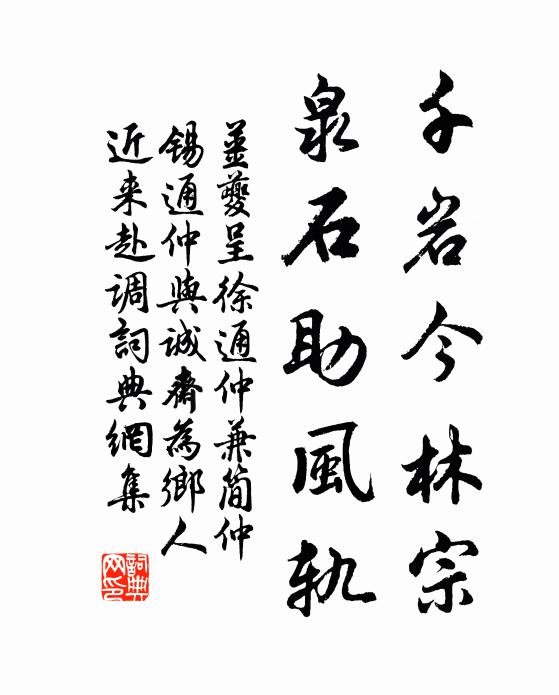 千岩今林宗
泉石助風軌
薑夔呈徐通仲兼简仲
錫通仲與诚齋為鄉人
近来赴调詞典網集
詞典网印